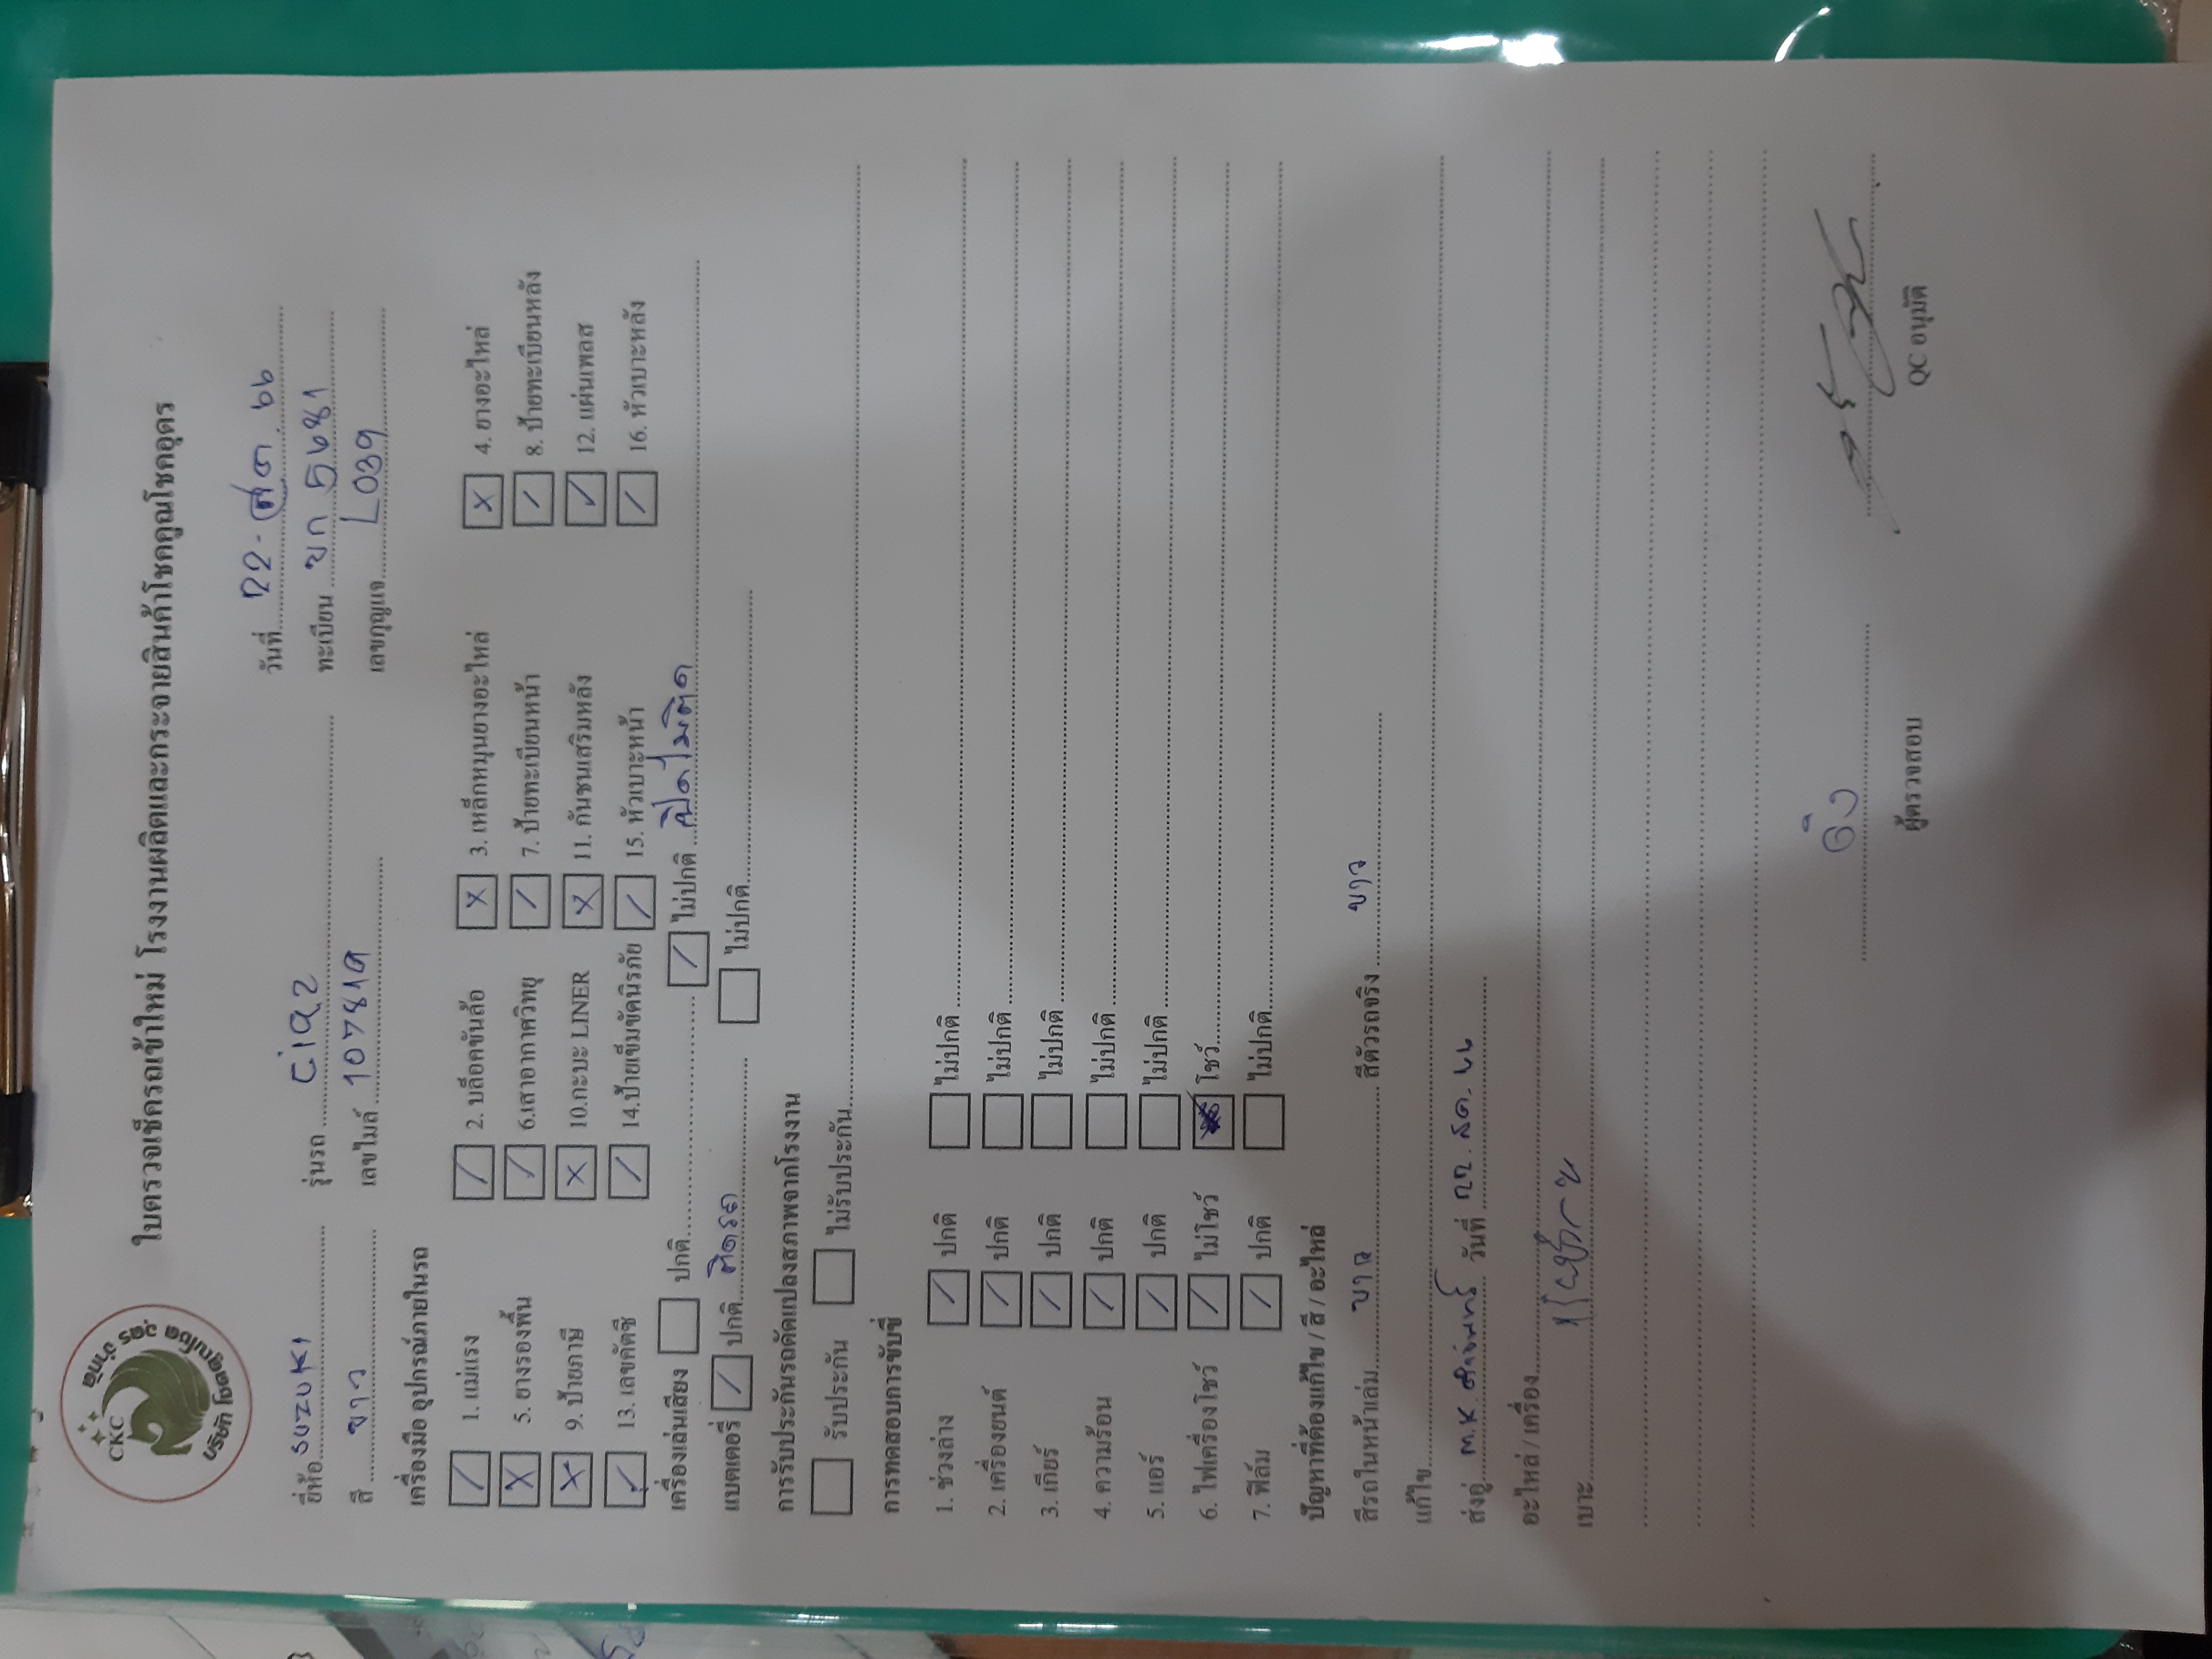 CKC
บริษัท โชคคูณโชค อุดร จำกัด
ใบตรวจเช็ครถเข้าใหม่ โรงงานผลิตและกระจายสินค้าโชคคูณโชคอุดร
วันที่ 22-
ยี่ห้อ SUZUKI รุ่นรถ Ciaz ทะเบียน ขก 5681
สี ขาว เลขไมล์ เลขกุญแจ L039
เครื่องมือ อุปกรณ์ภายในรถ
/ 1. แม่แรง / 2. บล็อคขันล้อ x 3. เหล็กหมุนยางอะไหล่ x 4. ยางอะไหล่
x 5. ยางรองพื้น / 6.เสาอากาศวิทยุ / 7. ป้ายทะเบียนหน้า / 8. ป้ายทะเบียนหลัง
x 9. ป้ายภาษี x 10.กะบะ LINER x 11. กันชนเสริมหลัง / 12. แผ่นเพลส
/ 13. เลขคัตซี / 14.ป้ายเข็มขัดนิรภัย / 15. หัวเบาะหน้า / 16. หัวเบาะหลัง
เครื่องเล่นเสียง ปกติ / ไม่ปกติ เปิดไม่ติด
แบตเตอรี่ / ปกติ ติดรถ ไม่ปกติ
การรับประกันรถดัดแปลงสภาพจากโรงงาน
รับประกัน ไม่รับประกัน
การทดสอบการขับขี่
1. ช่วงล่าง / ปกติ ไม่ปกติ
2. เครื่องยนต์ / ปกติ ไม่ปกติ
3. เกียร์ / ปกติ ไม่ปกติ
4. ความร้อน / ปกติ ไม่ปกติ
5. แอร์ / ปกติ ไม่ปกติ
6. ไฟเครื่องโชว์ / ไม่โชว์ โชว์
7. ฟิล์ม / ปกติ ไม่ปกติ
ปัญหาที่ต้องแก้ไข / สี / อะไหล่
สีรถในหน้าเล่ม ขาว สีตัวรถจริง ขาว
แก้ไข
ส่งอู่ M.K. วันที่ 22.
อะไหล่ / เครื่อง
เบาะ
ผู้ตรวจสอบ QC อนุมัติ